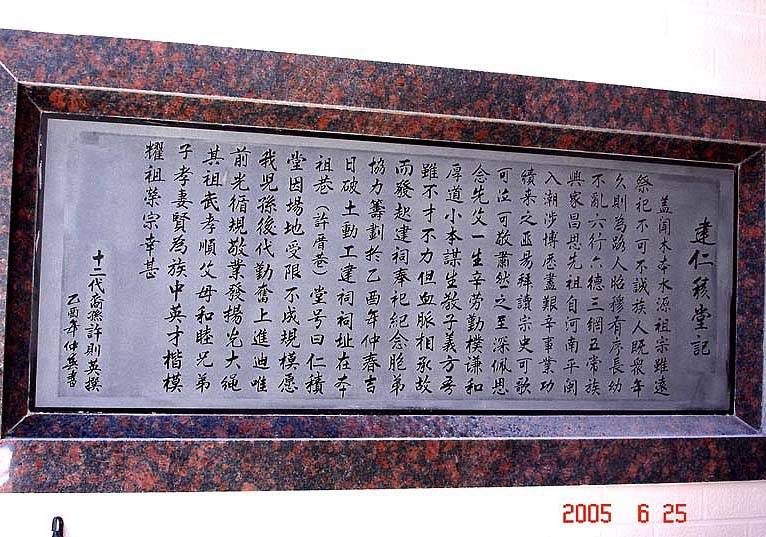 建仁積堂記
蓋聞木本水源祖宗雖遠
祭祀不可不誠族人既衆年
久則為路人昭穆有序長幼
不亂六行六德三綱五常族
興家昌思先祖自河南平閩
入潮涉博歷盡艱辛事業功
績来之匪易拜讀宗史可歌
可泣可敬肅然之至深佩恩
念先父一生辛劳勤樸謙和
厚道小本謀生教子義方吾
雖不才不力但血脈相承故
而發起建祠奉祀紀念胞弟
協力籌劃於乙酉年仲春吉
日破土動工建祠祠址在本
祖巷（許厝巷）堂号曰仁積
堂因場地受限不成規模愿
我兒孫後代勤奮上進迪唯
前光循規敬業發揚光大繩
其祖武孝順父母和睦兄弟
子孝妻賢為族中英才楷模
耀祖榮宗幸甚
十二代裔孫許則英撰
乙酉年仲英書
2005 6 25